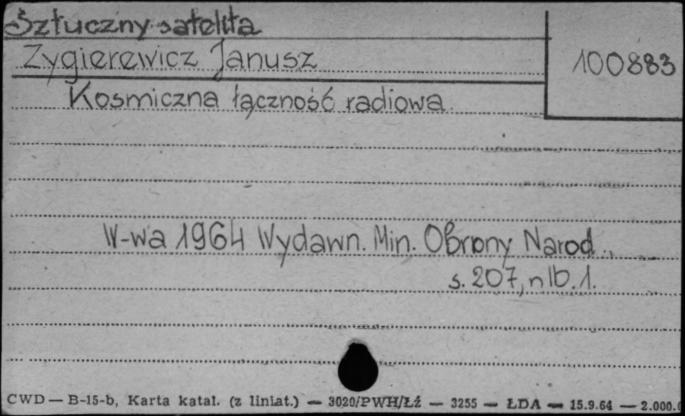 Sztuczny satelita
Zygierewicz Janusz
100883
Kosmiczna łączność radiowa
W-wa 1964 Wydawn. Min. Obrony Narod.,
s. 207, nlb. 1.
CWD — B-15-b, Karta katal. (z liniat.) — 3020/PWH/Łź — 3255 — ŁDA — 15.9.64 — 2.000.